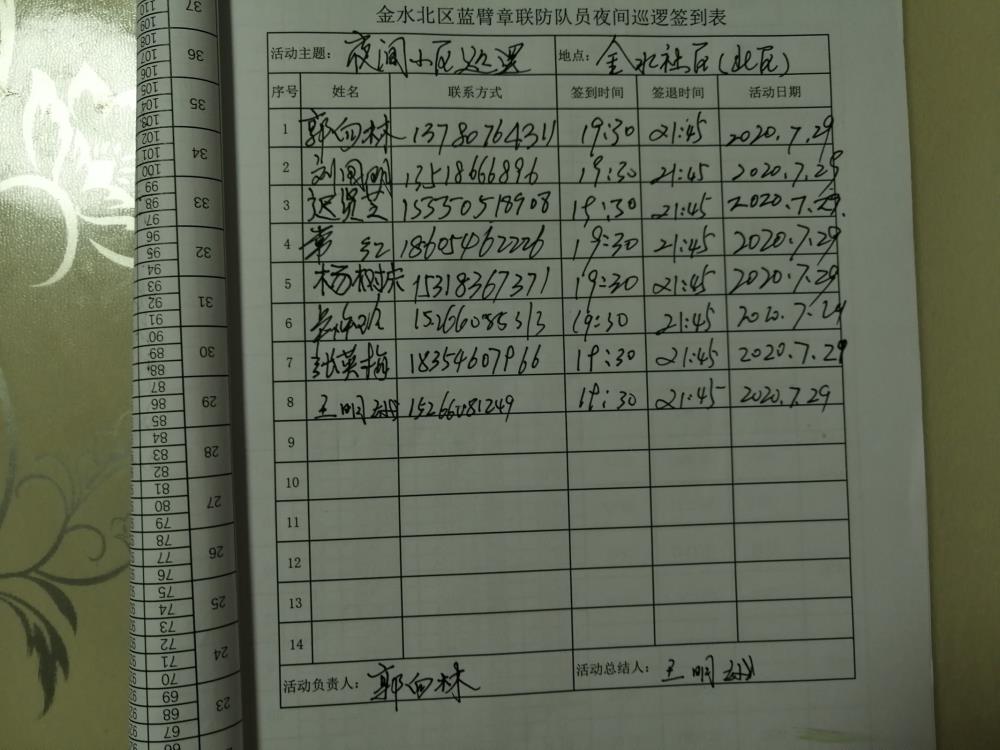 金水北区蓝臂章联防队员夜间巡逻签到表
活动主题: 夜间小区巡逻 地点: 金水社区(北区)
序号 姓名 联系方式 签到时间 签退时间 活动日期
1 郭向林 13780764311 19:30 21:45 2020.7.29
2 刘国明 13518666896 19:30 21:45 2020.7.29
3 迟贤芝 15350518908 19:30 21:45 2020.7.29.
4 常红 18605462226 19:30 21:45 2020.7.29
5 杨树林 15318367371 19:30 21:45 2020.7.29
6 15266085313 19:30 21:45 2020.7.29
7 张英梅 18354607966 19:30 21:45 2020.7.29
8 王明 15266081249 19:30 21:45 2020.7.29
9
10
11
12
13
14
活动负责人: 郭向林 活动总结人: 王明
37
36
35
34
33
32
31
30
29
28
27
26
25
24
23
110
109
108
107
106
105
104
103
102
101
100
99
98
97
96
95
94
93
92
91
90
89
88
87
86
85
84
83
82
81
80
79
78
77
76
75
74
73
72
71
70
69
68
67
66